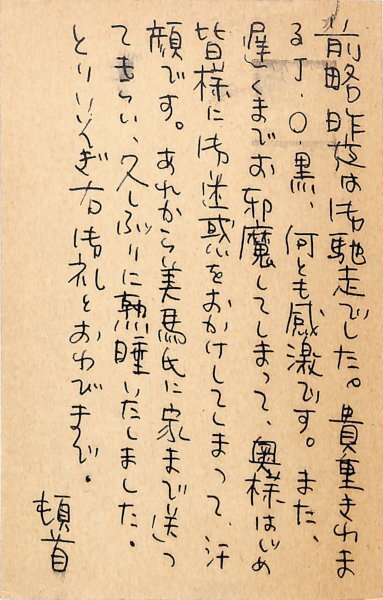 前略 昨夜は御馳走でした。貴重きわま
るJ.O.黒、何とも感激です。また、
遅くまでお邪魔してしまって、奥様はじめ
皆様に御迷惑をおかけしてしまって、汗
顔です。あれから美馬氏に家まで送っ
てもらい、久しぶりに熟睡いたしました。
とりいそぎ右御礼とおわびまで。
頓首